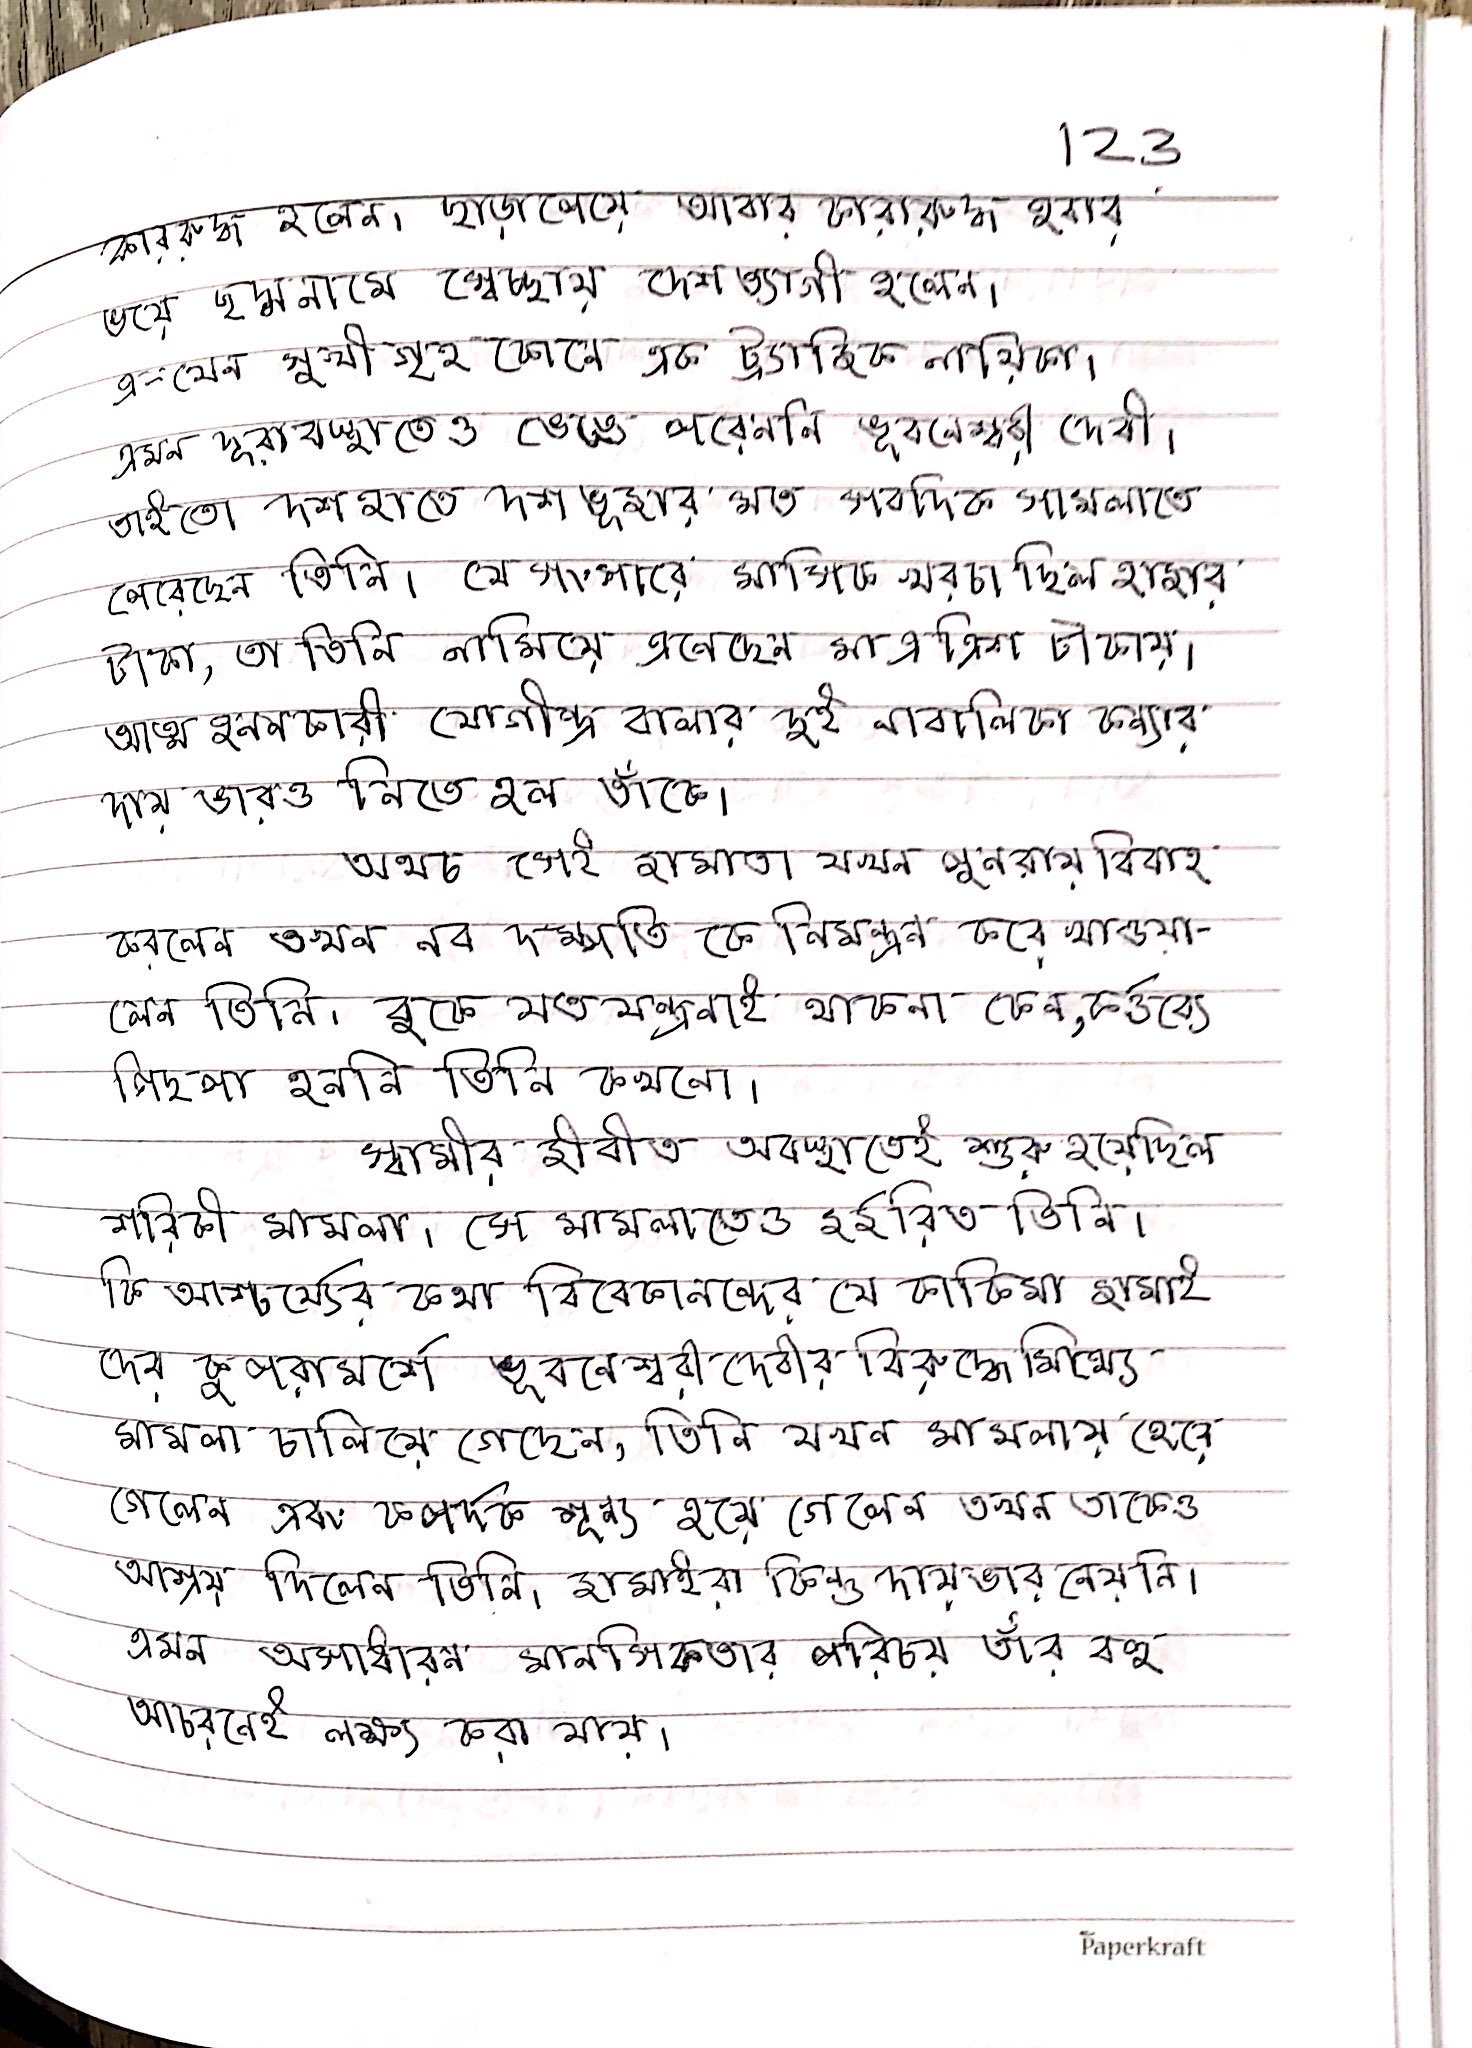 123
কাররুদ্ধ হলেন। ছাড়াপেয়ে আবার কারারুদ্ধ হবার
ভয়ে ছদ্মনামে স্বেচ্ছায় দেশত্যাগী হলেন।
এ-যেন সুখীগৃহ কোনে এক ট্র্যাজিক নায়িকা।
এমন দূরাবস্থাতেও ভেঙে পরেননি ভূবনেশ্বরী দেবী।
তাইতো দশহাতে দশভূজার মত সবদিক সামলাতে
পেরেছেন তিনি। যে সংসারে মাসিক খরচা ছিল হাজার
টাকা, তা তিনি নামিয়ে এনেছেন মাত্র ত্রিশ টাকায়।
আত্ম হননকারী যোগীন্দ্র বালার দুই নাবালিকা কন্যার
দায় ভারও নিতে হল তাঁকে।
অথচ সেই জামাতা যখন পুনরায় বিবাহ
করলেন তখন নব দম্পতি কে নিমন্ত্রন করে খাওয়া-
লেন তিনি। বুকে যত যন্ত্রনাই থাকনা কেন, কর্ত্তব্যে
পিছপা হননি তিনি কখনো।
স্বামীর জীবীত অবস্থাতেই শুরু হয়েছিল
শরিকী মামলা। সে মামলাতেও জর্জরিত তিনি।
কি আশ্চর্য্যের কথা বিবেকানন্দের যে কাকিমা জামাই
দের কুপরামর্শে ভূবনেশ্বরী দেবীর বিরুদ্ধে মিথ্যে
মামলা চালিয়ে গেছেন, তিনি যখন মামলায় হেরে
গেলেন এবং কপর্দক শূন্য হয়ে গেলেন তখন তাকেও
আশ্রয় দিলেন তিনি। জামাইরা কিন্তু দায়ভার নেয়নি।
এমন অসাধারন মানসিকতার পরিচয় তাঁর বহু
আচরনেই লক্ষ্য করা যায়।
Paperkraft